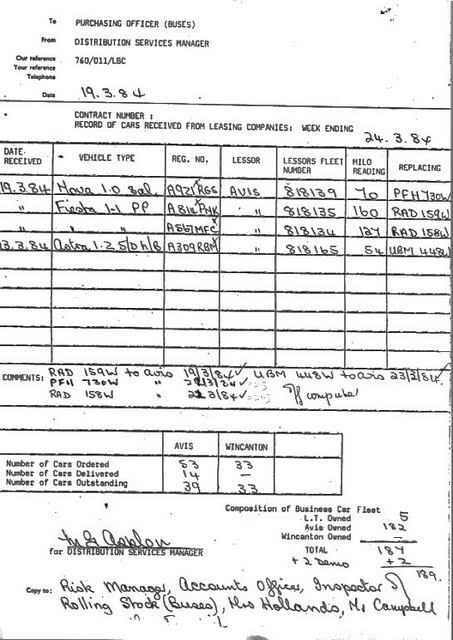 To PURCHASING OFFICER (BUSES)
From DISTRIBUTION SERVICES MANAGER
Our reference 760/011/LBC
Your reference
Telephone
Date 19.3.84
CONTRACT NUMBER :
RECORD OF CARS RECEIVED FROM LEASING COMPANIES: WEEK ENDING 24.3.84
DATE RECEIVED VEHICLE TYPE REG. NO. LESSOR LESSORS FLEET NUMBER MILO READING REPLACING
19.3.84 Nova 1.0 sal A921 RGS AVIS 818139 70 PFH 730W
" Fiesta 1.1 PP A814 PHK " 818135 160 RAD 159W
" " " A567 MFC " 818134 127 RAD 158W
23.3.84 Astra 1.2 5/D h/B A309 RBM " 818165 54 UBM 448W
COMMENTS: RAD 159W to avis 19/3/84 ✓ UBM 448W to avis 23/3/84.
PFH 730W " /3/84 ✓
RAD 158W " 3/84 ✓ Off computer
AVIS WINCANTON
Number of Cars Ordered 53 33
Number of Cars Delivered 14 —
Number of Cars Outstanding 39 33
Composition of Business Car Fleet
L.T. Owned 5
Avis Owned 182
Wincanton Owned —
TOTAL 187
+ 2 Demo + 2
189.
for DISTRIBUTION SERVICES MANAGER
Copy to: Risk Manager, Accounts Officer, Inspector of
Rolling Stock (Buses), Mrs Hollands, Mr Campbell